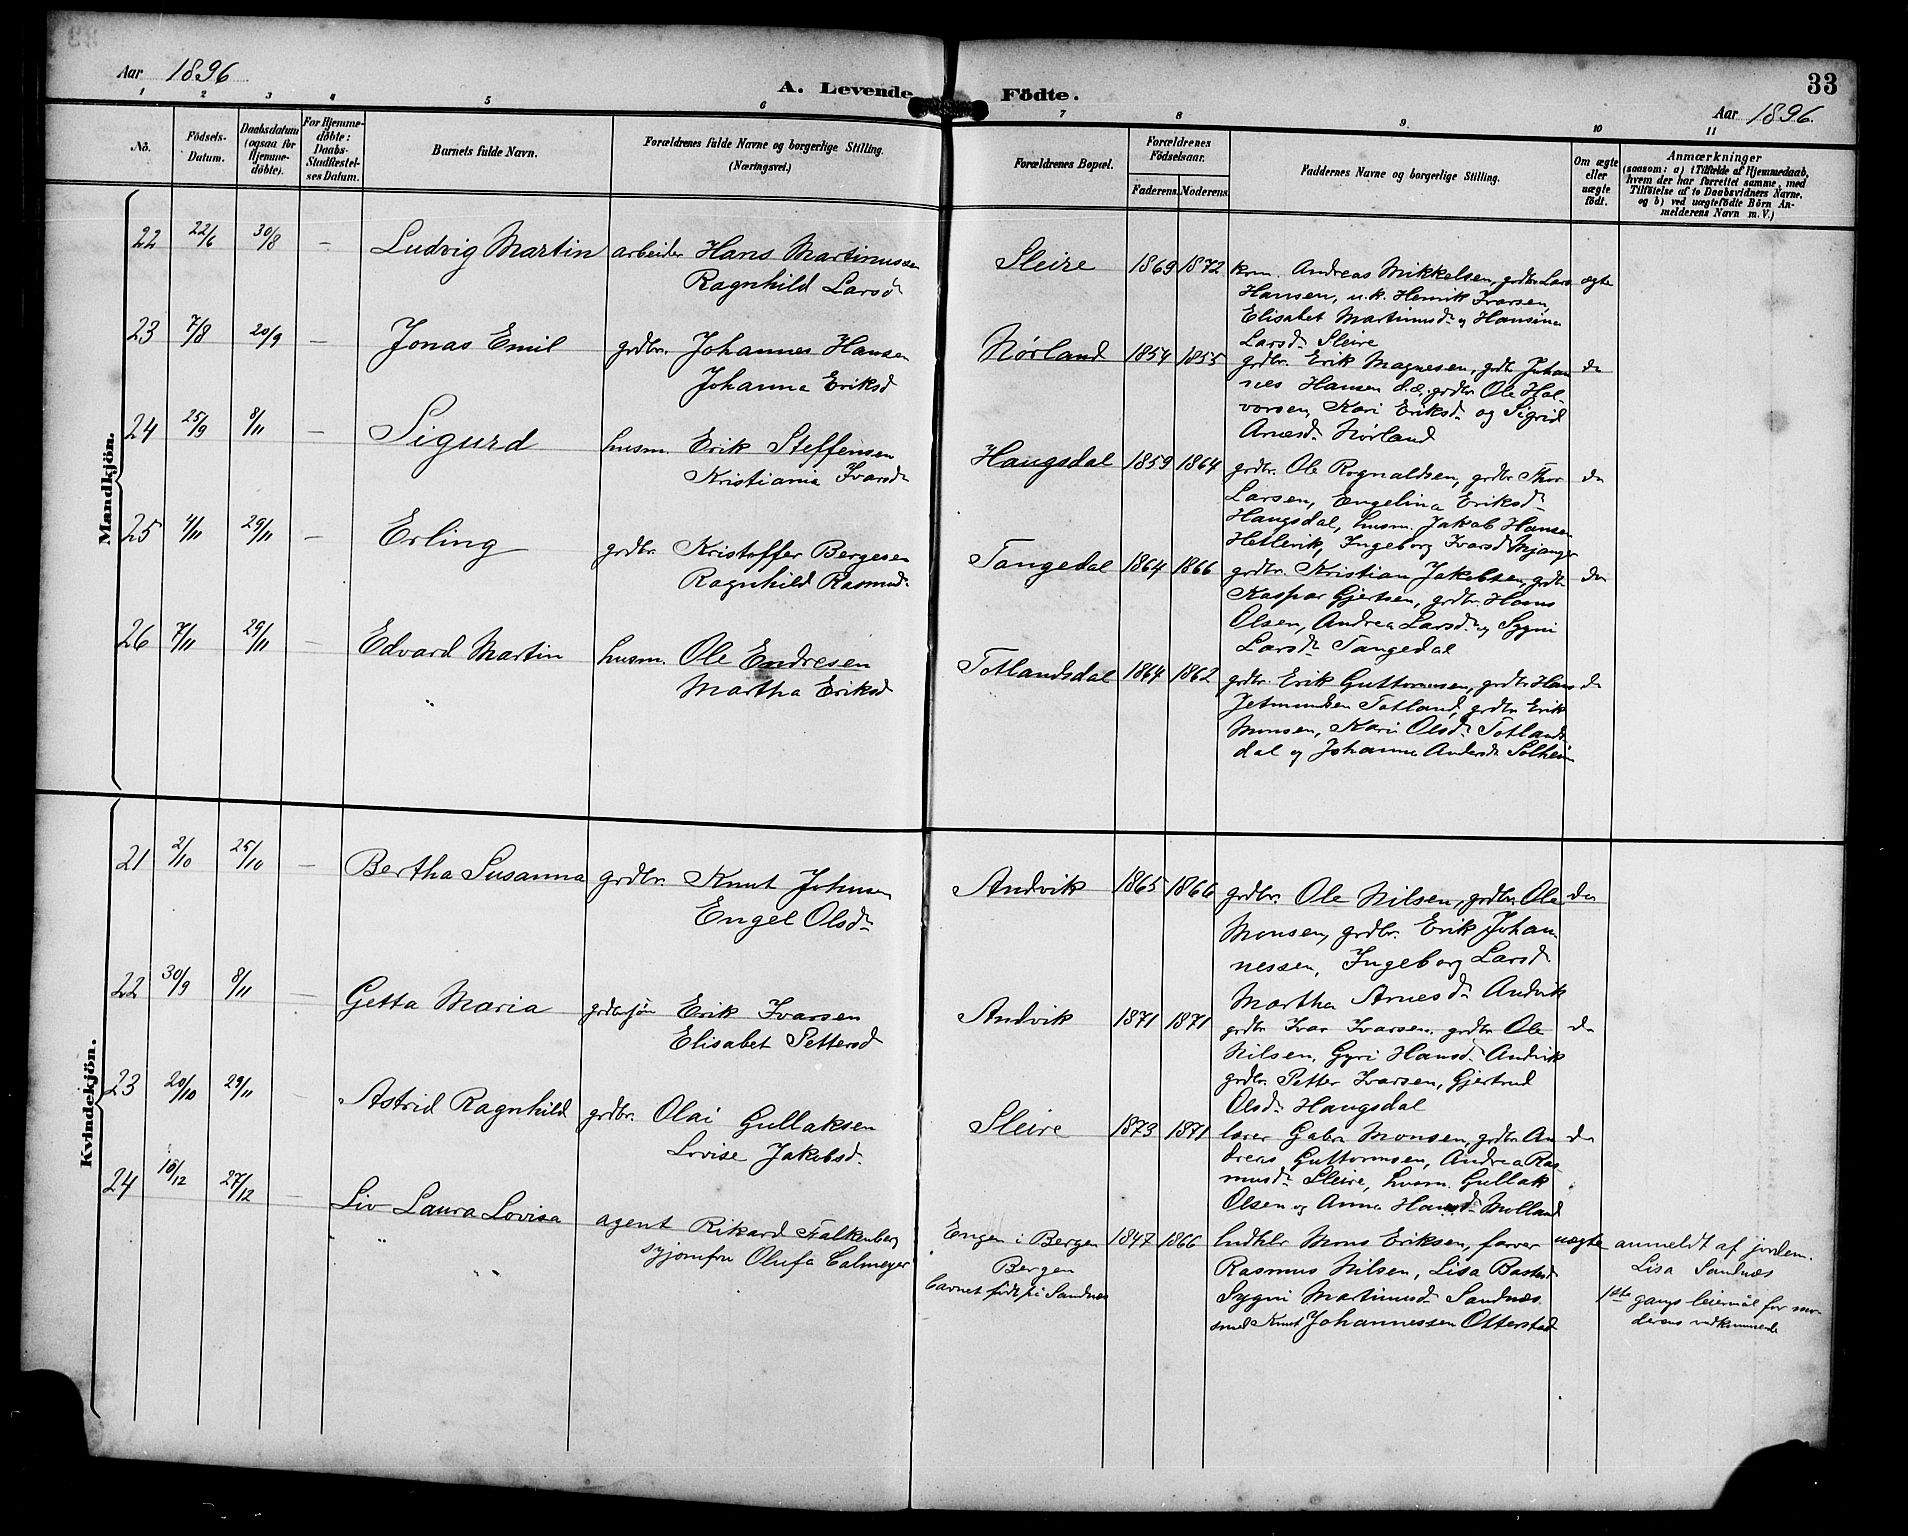 Aar 1896
A. Levende Födte.
33
Aar 1896.
1 2 3 4 5 6 7 8 9 10 11
No.
Födsels-Datum.
Daabsdatum (ogsaa for Hjemmedöbte).
For Hjemmedöbte: Daabs-Stadfæstelses Datum.
Barnets fulde Navn.
Forældrenes fulde Navne og borgerlige Stilling.
(Næringsvei.)
Forældrenes Bopæl.
Forældrenes Födselsaar.
Faderens. Moderens.
Faddernes Navne og borgerlige Stilling.
Om ægte eller uægte födt.
Anmærkninger
(saasom: a) i Tilfælde af Hjemmedaab,
hvem der har forrettet samme, med
Tilföielse af to Daabsvidners Navne,
og b) ved uægtefödte Börn Anmelderens Navn m. V.)
Mandkjön.
22 22/6 30/8 — Ludvig Martin arbeider Hans Martinussen
Ragnhild Larsd
Sleire 1869 1872 Andreas Mikkelsen, grdbr. Lars ægte
Hansen, u.k. Henrik Ivarsen,
Elisabet Martinusd. og Hansina
Larsd. Sleire
23 7/8 20/9 — Jonas Emil grdbr. Johannes Hansen
Johanna Eriksd
Nörland 1854 1855 grdbr. Erik Magnesen, grdbr Johan do
nes Hansen d.æ. grdbr Ole Hal-
vorsen, Kari Eriksd. og Sigrid
Arnesd. Nörland
24 25/9 8/11 — Sigurd husm. Erik Steffensen
Kristiania Ivarsd.
Haugsdal 1859 1864 grdbr. Ole Rognaldsen, grdbr Thor do
Larsen, Engelina Eriksd.
Haugsdal, husm. Jakob Hansen
Hetlevik, Ingeborg Ivarsd Mjanger
25 1/11 29/11 — Erling grdbr. Kristoffer Bergesen
Ragnhild Rasmusd.
Tangedal 1864 1866 grdbr. Kristian Jakobsen, grdbr do
Kaspar Gjertsen, grdbr. Hans
Olsen, Andrea Larsd. og Sygni
Larsd. Tangedal
26 7/11 29/11 — Edvard Martin husm. Ole Endresen
Martha Eriksd
Totlandsdal 1864 1862 grdbr. Erik Guttormsen, grdbr Hans do
Jetmundsen Totland, grdbr Erik
Monsen, Kari Olsd. Totlands-
dal og Johanna Andersd. Solheim
Kvindekjön.
21 2/10 25/10 — Bertha Susanna grdbr. Knut Johnsen
Engel Olsd.
Andvik 1865 1866 grdbr. Ole Nilsen, grdbr. Ole do
Monsen, grdbr. Erik Johan-
nessen, Ingeborg Larsd
Martha Arnesd. Andvik
22 30/9 8/11 — Getta Maria grdbrsön Erik Ivarsen
Elisabet Pettersd
Andvik 1871 1871 grdbr Ivar Ivarsen, grdbr Ole do
Nilsen, Gyri Hansd. Andvik
grdbr. Petter Ivarsen, Gjertrud
Olsd. Haugsdal
23 20/10 29/11 — Astrid Ragnhild grdbr. Olai Gullaksen
Lovise Jakobsd.
Sleire 1873 1871 lærer Gabr. Monsen, grdbr. An do
dreas Guttormsen, Andrea Ras-
musd. Sleire, husm. Gullak
Olsen og Anna Hansd. Molland
24 16/12 27/12 — Liv Laura Lovisa agent Rikard Falkenberg
syjomfru Olufa Calmeyer
Engen i Bergen 1847 1866 Mons Eriksen, farver uægte anmeldt af jordem.
Bergen Rasmus Nilsen, Lisa Lisa Sandnæs
barnet födt på Sandnæs Sygni Martinusd. Sandnæs 1ste gangs leiermål for mo-
smed Knut Johannessen Otterstad derens vedkommende